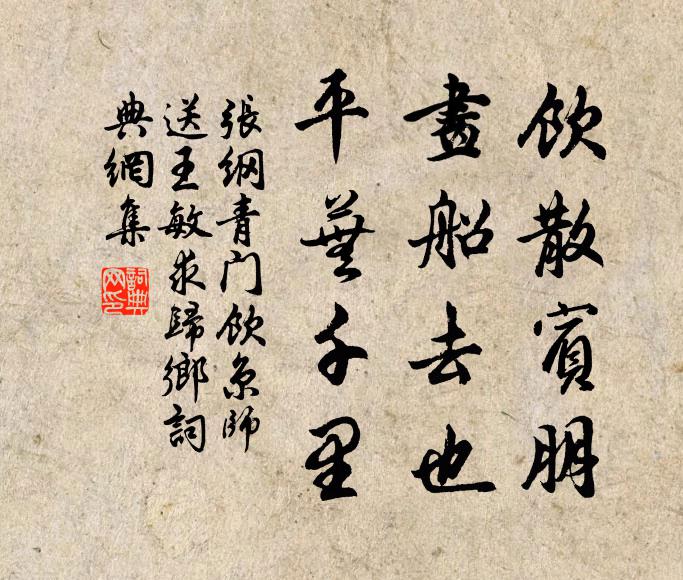 飲散賓朋
畫船去也
平蕪千里
張綱青门飲京師
送王敏求歸鄉詞
典網集
詞典网印